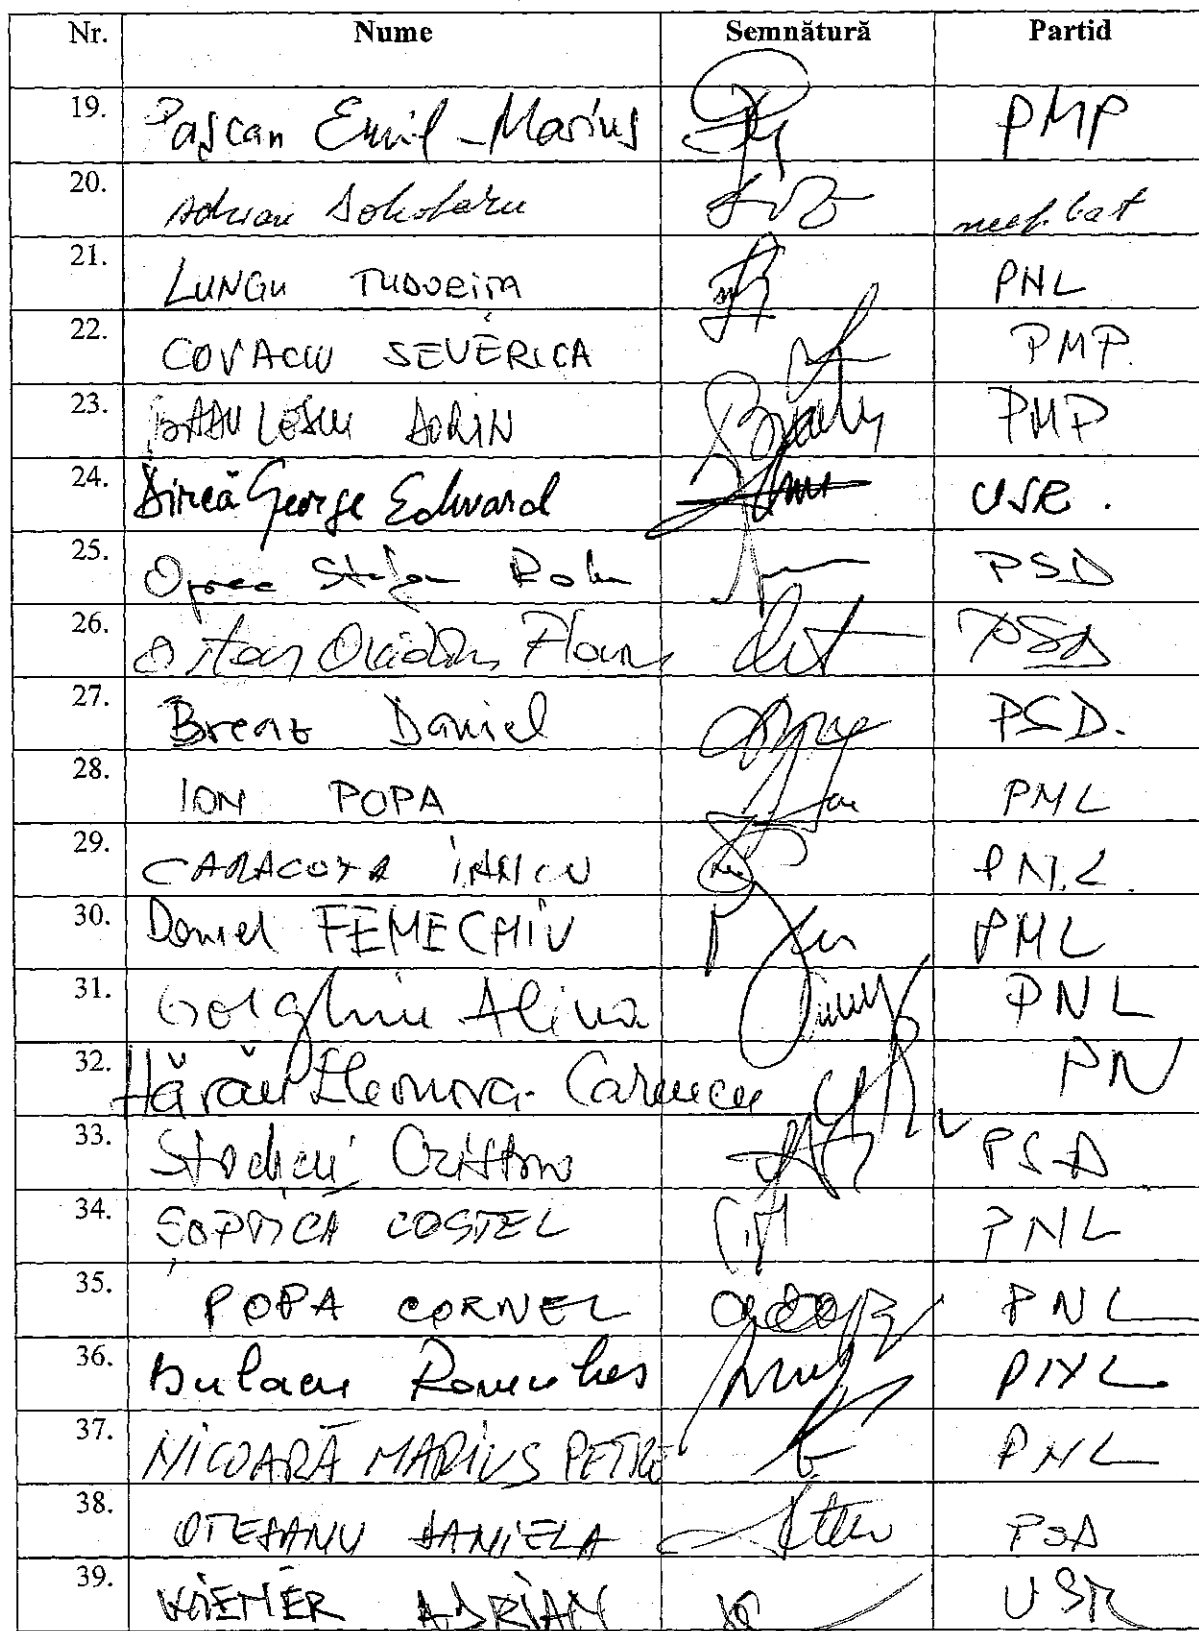 Nr. Nume Semnătură Partid
19. Pașcan Emil-Marius PMP
20. Adrian neafiliat
21. LUNGU TUDORIȚA PNL
22. COVACIU SEVERICA PMP.
23. BĂDULESCU DORIN PMP
24. Dircă George Edward USR.
25. Oprea Stefan Radu PSD
26. Ovidiu PSD
27. Breaz Daniel PSD.
28. ION POPA PNL
29. CARACOTA IANCU PNL.
30. Daniel FENECHIU PNL
31. Gorghiu Alina PNL
32. Hărău Eleonora-Carmen PN
33. Stocheci Cristina PSD
34. ȘOPTICĂ COSTEL PNL
35. POPA CORNEL PNL
36. Bulacu Romulus PNL
37. NICOARĂ MARIUS PETRE PNL
38. OTEȘANU DANIELA PSD
39. WIENER ADRIAN USR